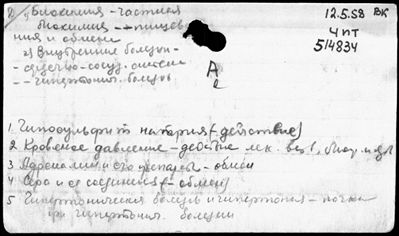 1) Биохимия - частная
12.5.58 ВК
биохимия - пищев
ЧПТ
ния и обмен
514834
2) Внутренние болезни -
- сердечно-сосуд.
- гипертонич. болезнь
А
1 Гипосульфит натрия (действие)
2 Кровяное давление - действие лек. вещ.
3 Адреналин и его препараты - обмен
4 Сера и ее соединения (- обмен)
5 Гипертоническая болезнь и гипертония - почки
при гипертонич. болезни